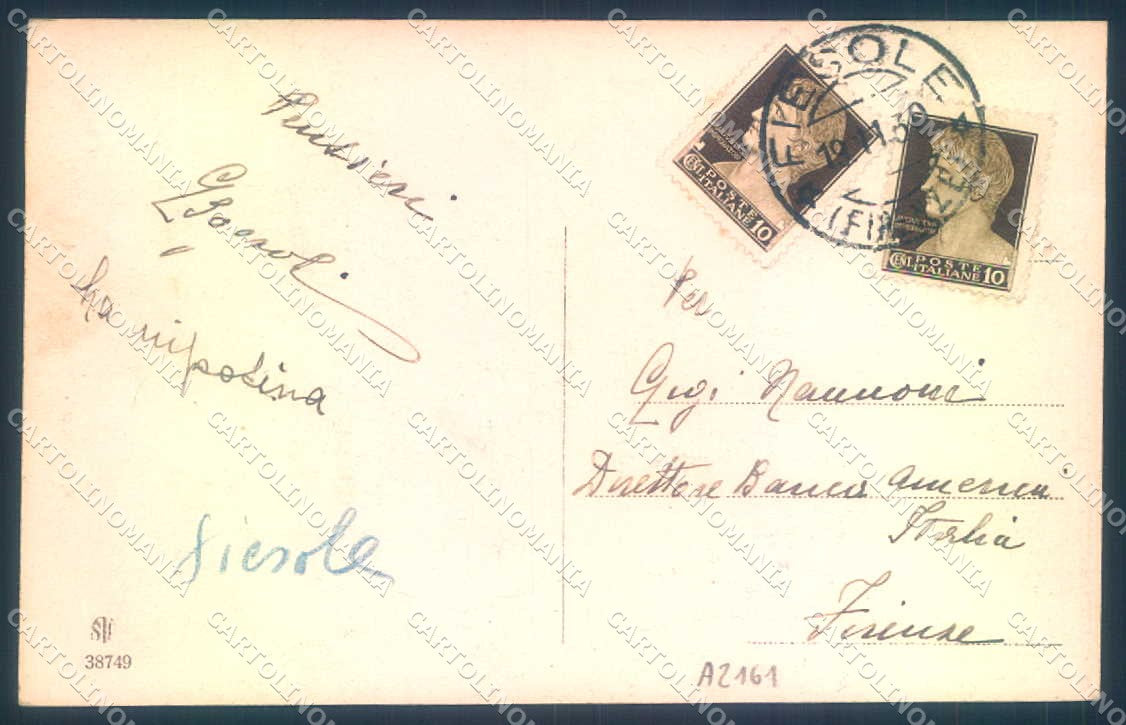 Pensieri
La nipotina
Fiesole
38749
FIESOLE
(FIRENZE)
CENT. POSTE ITALIANE 10
CENT. POSTE ITALIANE 10
Per
Gigi Nannoni
Direttore Banca America
Italia
Firenze
A2161
CARTOLINOMANIA